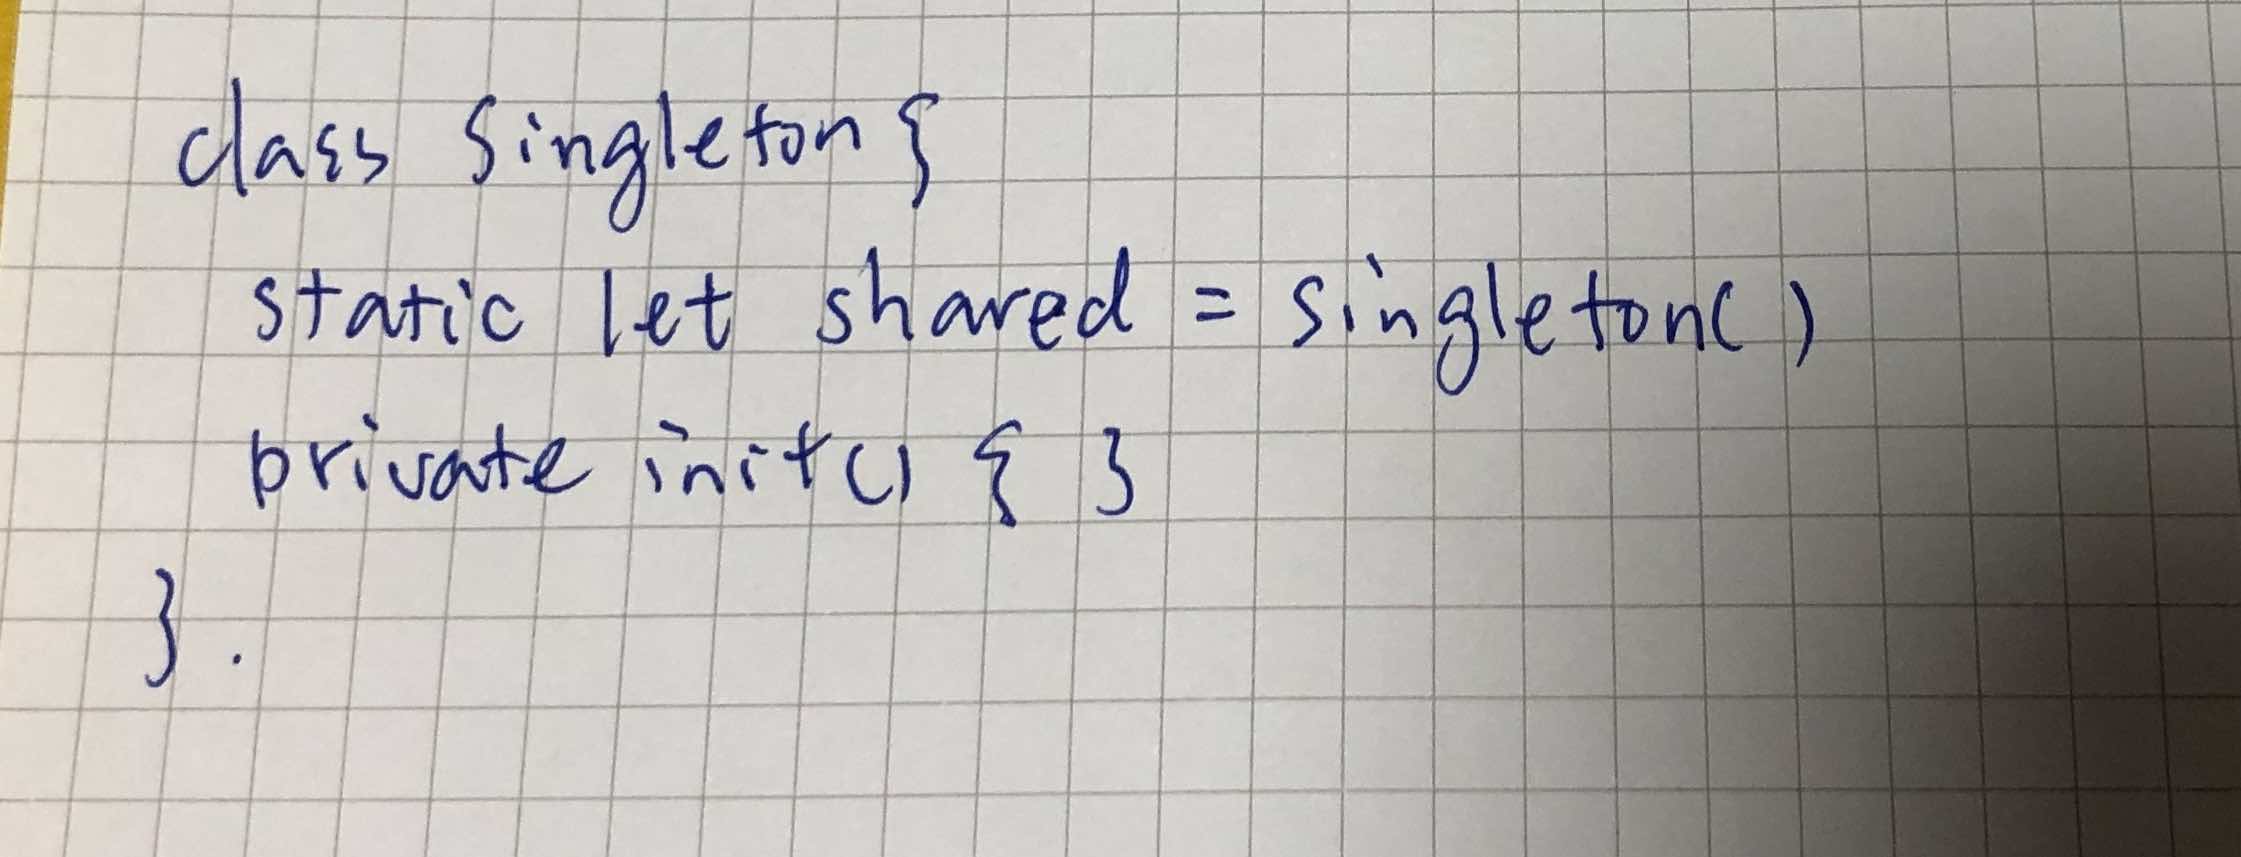 class Singleton {
static let shared = Singleton()
private init() { }
}.